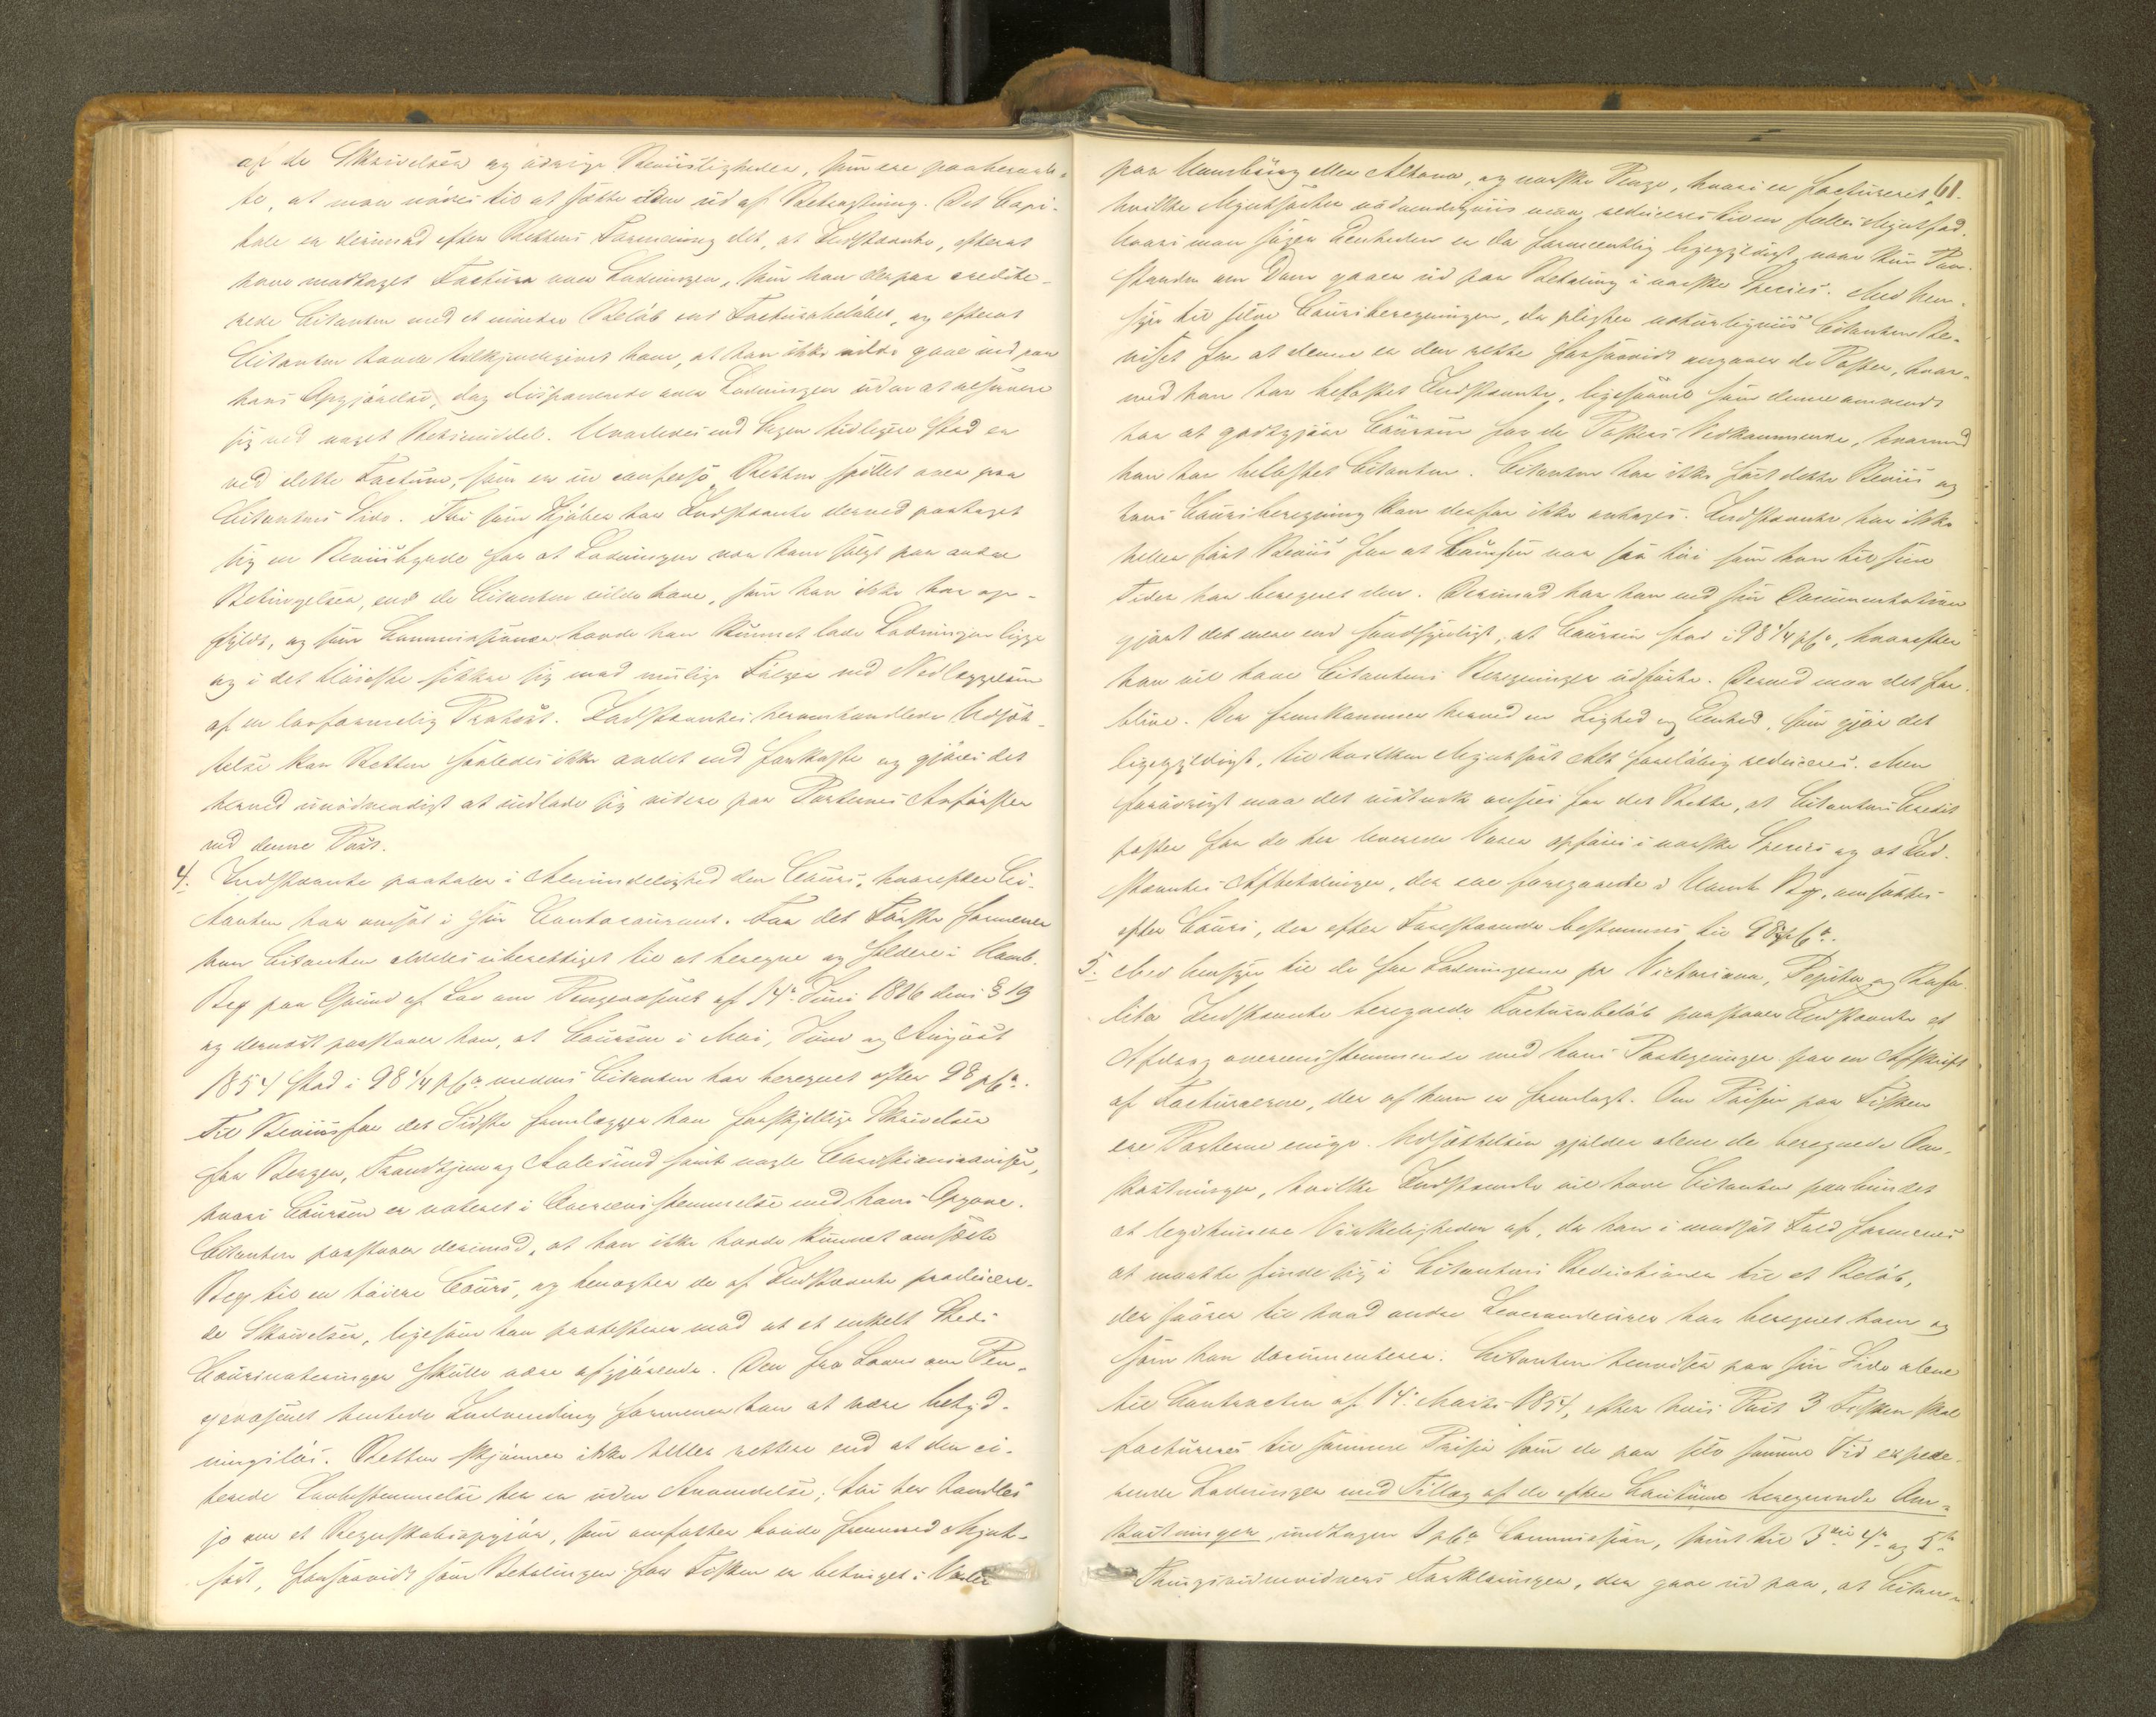 af de Skrivelser og øvrige Beviisligheder, som ere paaberaab-
te, at man nødes til at sætte dem ud af Betragtning. Det Capi-
tale er derimod efter Rettens Formening det, at Indstævnte, efterat
have modtaget Factura over Ladningen, som han derpaa credite-
rede Citanten med et mindre Beløb end Facturabeløbet, og efterat
Citanten havde tilkjendegivet ham, at han ikke vilde gaae ind paa
hans Opgjørelse, dog disponerede over Ladningen uden at reservere
sig ved noget Retsmiddel. Hvorledes end Sagen tidligere stod er
ved dette Factum, som er in confesso, Retten spillet over paa
Citantens Side. Thi som Kjøber har Indstævnte derved paataget
sig en Beviisbyrde for at Ladningen var ham solgt paa andre
Betingelser, end de Citanten vilde have, som han ikke har op-
fyldt, og som Commissionær havde han kunnet lade Ladningen ligge
og i det høieste sikkre sig mod mulige Følger ved Nedlæggelsen
af en lovformelig Protest. Indstævntes heromhandlede Udsæt-
telse kan Retten saaledes ikke andet end forkaste og gjøres det
herved unødvendigt at indlade sig videre paa Parternes Anførsler
ved denne Post.
4. Indstævnte paataler i Almindelighed den Cours, hvorefter Ci-
tanten har omsat i sin Contocourant. For det Første formener
han Citanten aldeles uberettiget til at beregne og saldere i Hamb.
Bco paa Grund af Lov om Pengevæsenet af 14de Juni 1816 dens § 19
og dernæst paastaaer han, at Coursen i Mai, Juni og August
1854 stod i 98 1/4 pCt medens Citanten har beregnet efter 98 pCt.
Til Beviis for det Sidste fremlægger han forskjellige Skrivelser
fra Bergen, Trondhjem og Aalesund samt nogle Christianiaaviser,
hvori Coursen er noteret i Overeensstemmelse med hans Opgave.
Citanten paastaaer derimod, at han ikke havde kunnet omsætte
Bco til en høiere Cours, og benægter de af Indstævnte producere-
de Skrivelser, ligesom han protesterer mod at et enkelt Steds
Coursnoteringer skulle være afgjørende. Den fra Loven om Pen-
gevæsenet hentede Indvending formener han at være betyd-
ningsløs. Retten skjønner ikke heller rettere end at den ci-
terede Lovbestemmelse her er uden Anvendelse; thi her handles
jo om et Regnskabsopgjør, som omfatter baade fremmed Mynt-
sort, forsaavidt som Betalingen for Fisken er betinget i Vexler
61.
paa Hamburg eller Altona, og norske Penge, hvori er factureret,
hvilke Myntsorter nødvendigviis maa reduceres til en fælles Myntfod.
Hvori man søger Eenheden er da formeentlig ligegyldigt, naar kun Paa-
standen om Dom gaaer ud paa Betaling i norske Species. Med Hen-
syn til selve Coursberegningen, da pligter naturligviis Citanten Be-
viset for at denne er den rette forsaavidt angaaer de Poster, hvor-
med han har belastet Indstævnte, ligesaavel som denne omvendt
har at godtgjøre Coursen for de Posters Vedkommende, hvormed
han har belastet Citanten. Citanten har ikke ført dette Beviis og
hans Coursberegning kan derfor ikke antages. Indstævnte har ikke
heller ført Beviis for at Coursen var saa høi som han til sine
Tider har beregnet den. Derimod har han ved sin Documentation
gjort det mere end sandsynligt, at Coursen stod i 98 1/4 pCt, hvorefter
han vil have Citantens Beregninger udførte. Derved maa det for-
blive. Der fremkommer herved en Lighed og Eenhed, som gjør det
ligegyldigt, til hvilken Myntsort Alt foreløbig reduceres. Men
forøvrigt maa det nærmest ansees for det Rette, at Citantens Credit
poster for de her leverede Varer opføres i norske Species og at Ind-
stævntes Afbetalinger, der ere foregaaede i Hamb. Bco, omsættes
efter Cours, der efter Forestaaende bestemmes til 98 1/4 pCt.
5. Med Hensyn til de for Ladningerne pr Victoriana, Pepita og Rafa-
lita Indstævnte beregnede Facturabeløb paastaaer Indstævnte et
Afdrag overeensstemmende med hans Paategninger paa en Afskrift
af Facturaerne, der af ham er fremlagt. Om Prisen paa Fisken
ere Parterne enige. Udsættelsen gjælder alene de beregnede Om-
kostninger, hvilke Indstævnte vil have Citanten paabundet
at legitimere Virkeligheden af, da han i modsat Fald formenes
at maatte finde sig i Citantens Reductioner til et Beløb,
der svarer til hvad andre Leverandeurer har beregnet ham og
som han documenterer. Citanten henviser paa sin Side alene
til Contracten af 14de Marts 1854, efter hvis Post 3 Fisken skal
factureres til samme Priser som de paa selv samme Tid expede-
rende Ladninger med Tillæg af de efter Coutume beregnende Om-
kostninger, undtagen 1 pCt Commission, samt til 3die, 4de og 5te
Thingsvidnevidners Forklaringer, der gaae ud paa, at Citan-